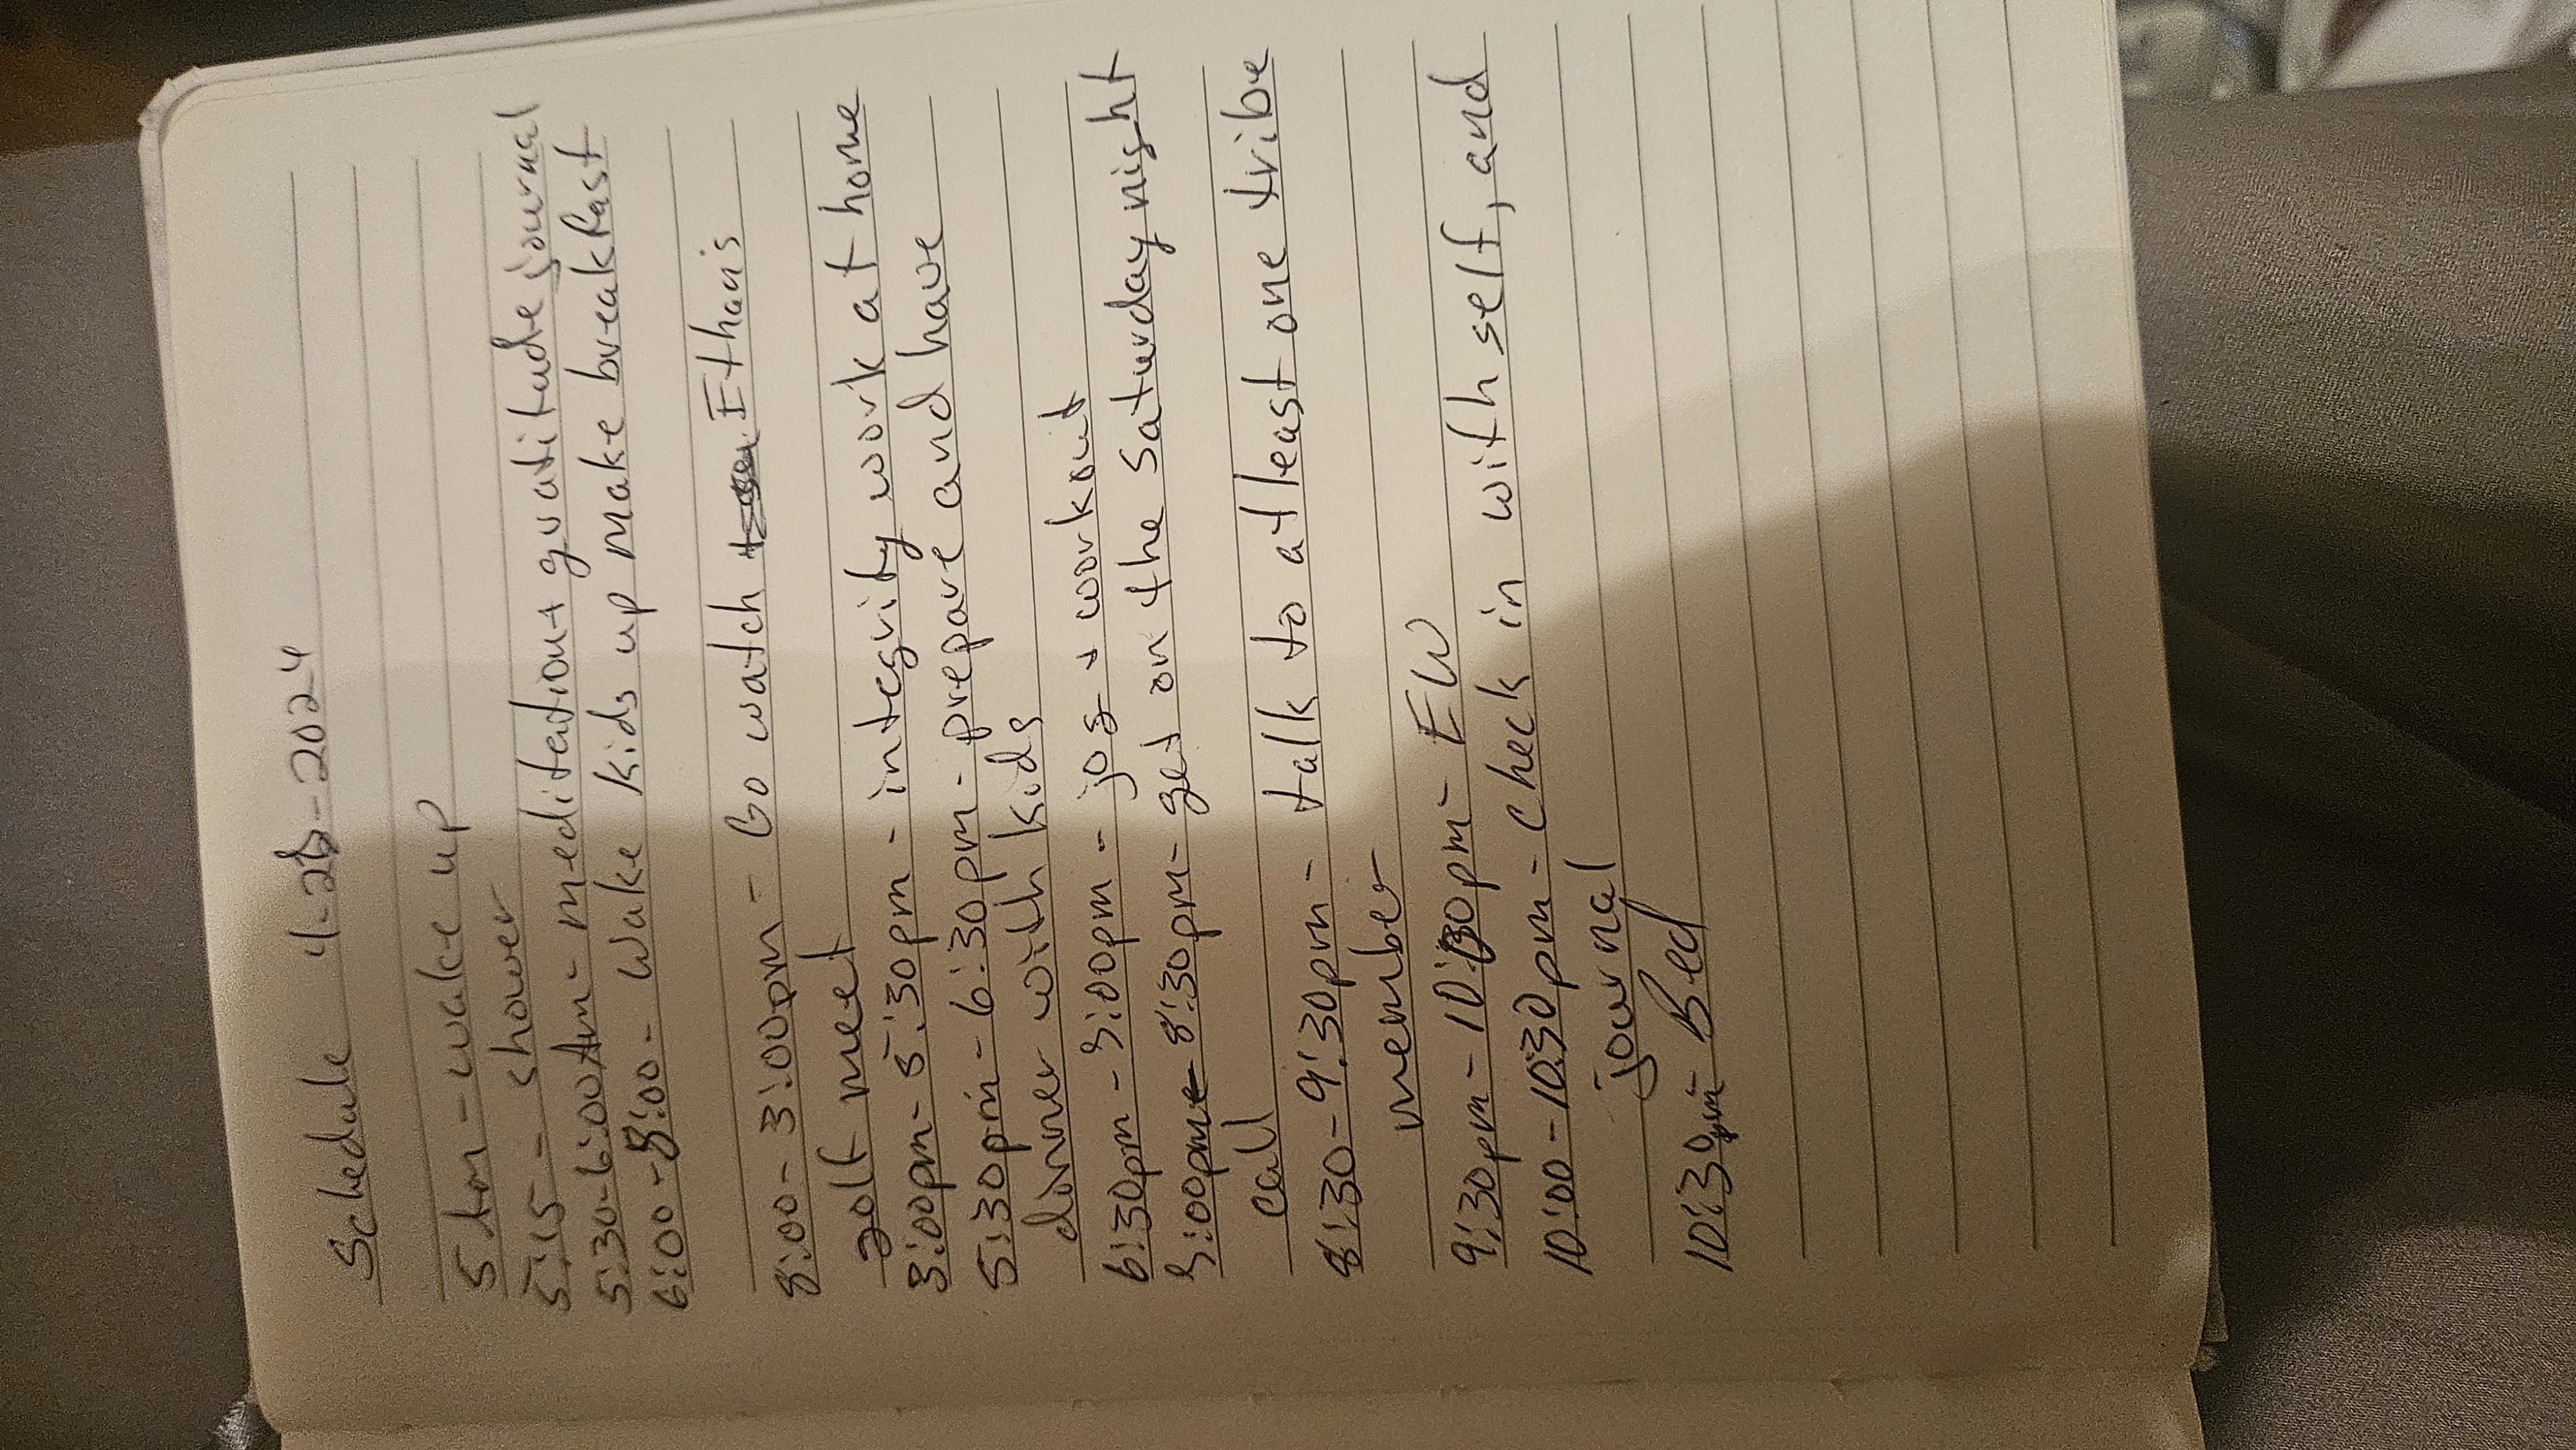 Schedule 4-2-2024
5 Am - wake up
5:15 - shower
5:30-6:00 Am - meditation + gratitude journal
6:00 - 8:00 - wake kids up make breakfast
8:00 - 3:00pm - Go watch Ethan's
golf meet
3:00pm - 5:30pm - integrity work at home
5:30pm - 6:30pm - prepare and have
dinner with kids
6:30pm - 7:00pm - jog + workout
7:00pm - 8:30pm - get on the Saturday night
call
8:30 - 9:30pm - talk to at least one tribe
member
9:30pm - 10:00pm - EW
10:00 - 10:30pm - check in with self, and
journal
10:30pm - Bed